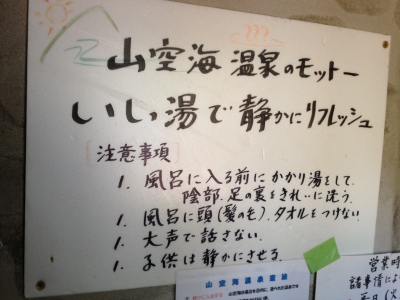 山空海温泉のモットー
いい湯で静かにリフレッシュ
注意事項
1. 風呂に入る前にかかり湯をして、
陰部、足の裏をきれいに洗う。
1. 風呂に頭(髪のも)、タオルをつけない。
1. 大声で話さない。
1. 子供は静かにさせる。
山空海温泉憲法
営業時
諸事情によ